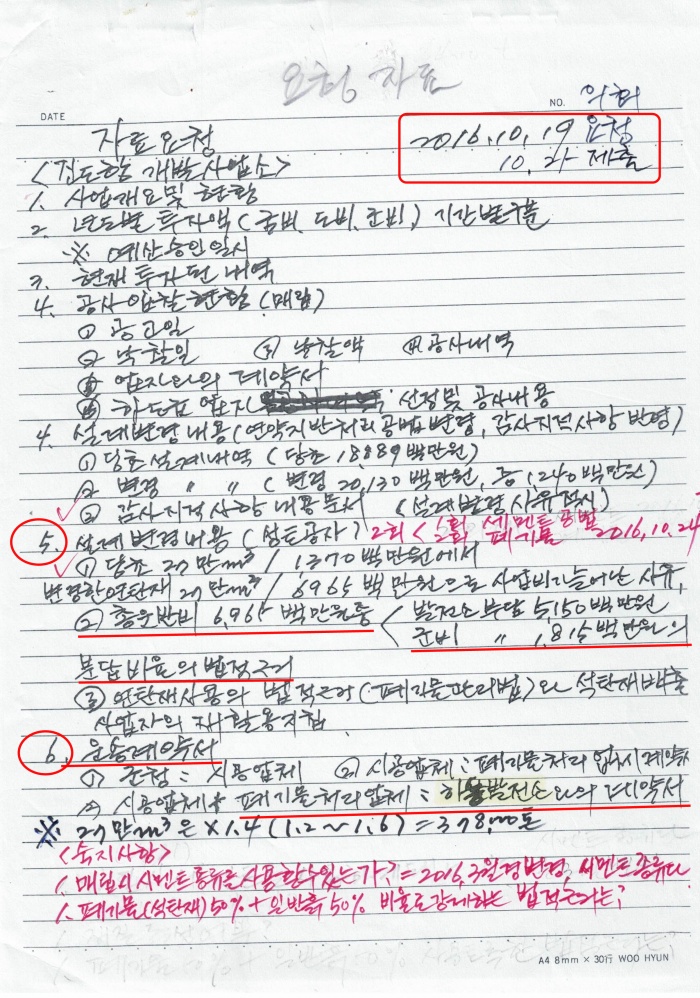 요청 자료
DATE
NO.
자료 요청
2016.10.19 요청
10.24 제출
개발사업소>
1. 사업개요 및 현황
2. 년도별 투자액 (국비, 도비, 군비,) 기간별 구분
※ 예산승인일시
3. 현재 투자된 내역
4. 공사 입찰현황 (매립)
① 공고일
② 낙찰일 ③ 낙찰액 ④ 공사내역
업자와의 계약서
하도급 업자 선정 및 공사내용
4. 설계변경내용 (연약지반처리공법변경, 감사지적사항 반영)
① 당초설계내역 (당초 18,889백만원)
② 변경 〃 〃 (변경 20,130백만원, 증 1,240백만원)
③ 감사지적사항 내용문서 (설계변경사유적시)
5. 설계변경내용 (성토공사) 2회 < 1회 시멘트공법 2회 폐기물 2016.10.24
① 당초 27만m³ / 1370백만원에서
변경한 연탄재 27만m³ / 6965백만원으로 사업비가 늘어난 사유,
② 총운반비 6,965 백만원중 < 발전소부담 5,150백만원
군비 〃 1,815백만원의
분담비율의 법적근거
③ 연탄재사용의 법적근거 (폐기물관리법)와 석탄재배출
사업자의 재활용지침
6. 운송계약서
① 군청 : 시공업체 ② 시공업체 : 폐기물처리업체 계약
시공업체 + 폐기물처리업체 : 하동발전소와의 계약서
※ 27만m³은 × 1.4 (1.2~1.6) = 378,000톤
<숙지사항>
1. 매립시 시멘트종류를 사용할 수 있는가? = 2016, 3월경변경, 시멘트종류다
1. 폐기물(석탄재) 50% + 일반흙 50% 비율로 강제하는 법적근거는?
A4 8mm × 30行 WOO HYUN